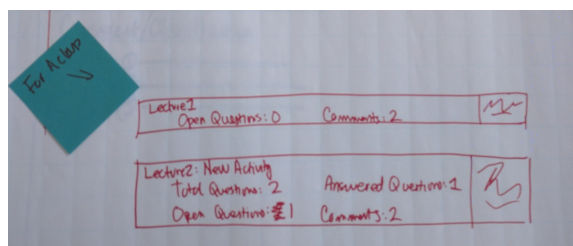 For Aclass
Lecture 1
Open Questions: 0 Comments: 2
Lecture 2: New Activity
Total Questions: 2 Answered Questions: 1
Open Questions: 1 Comments: 2